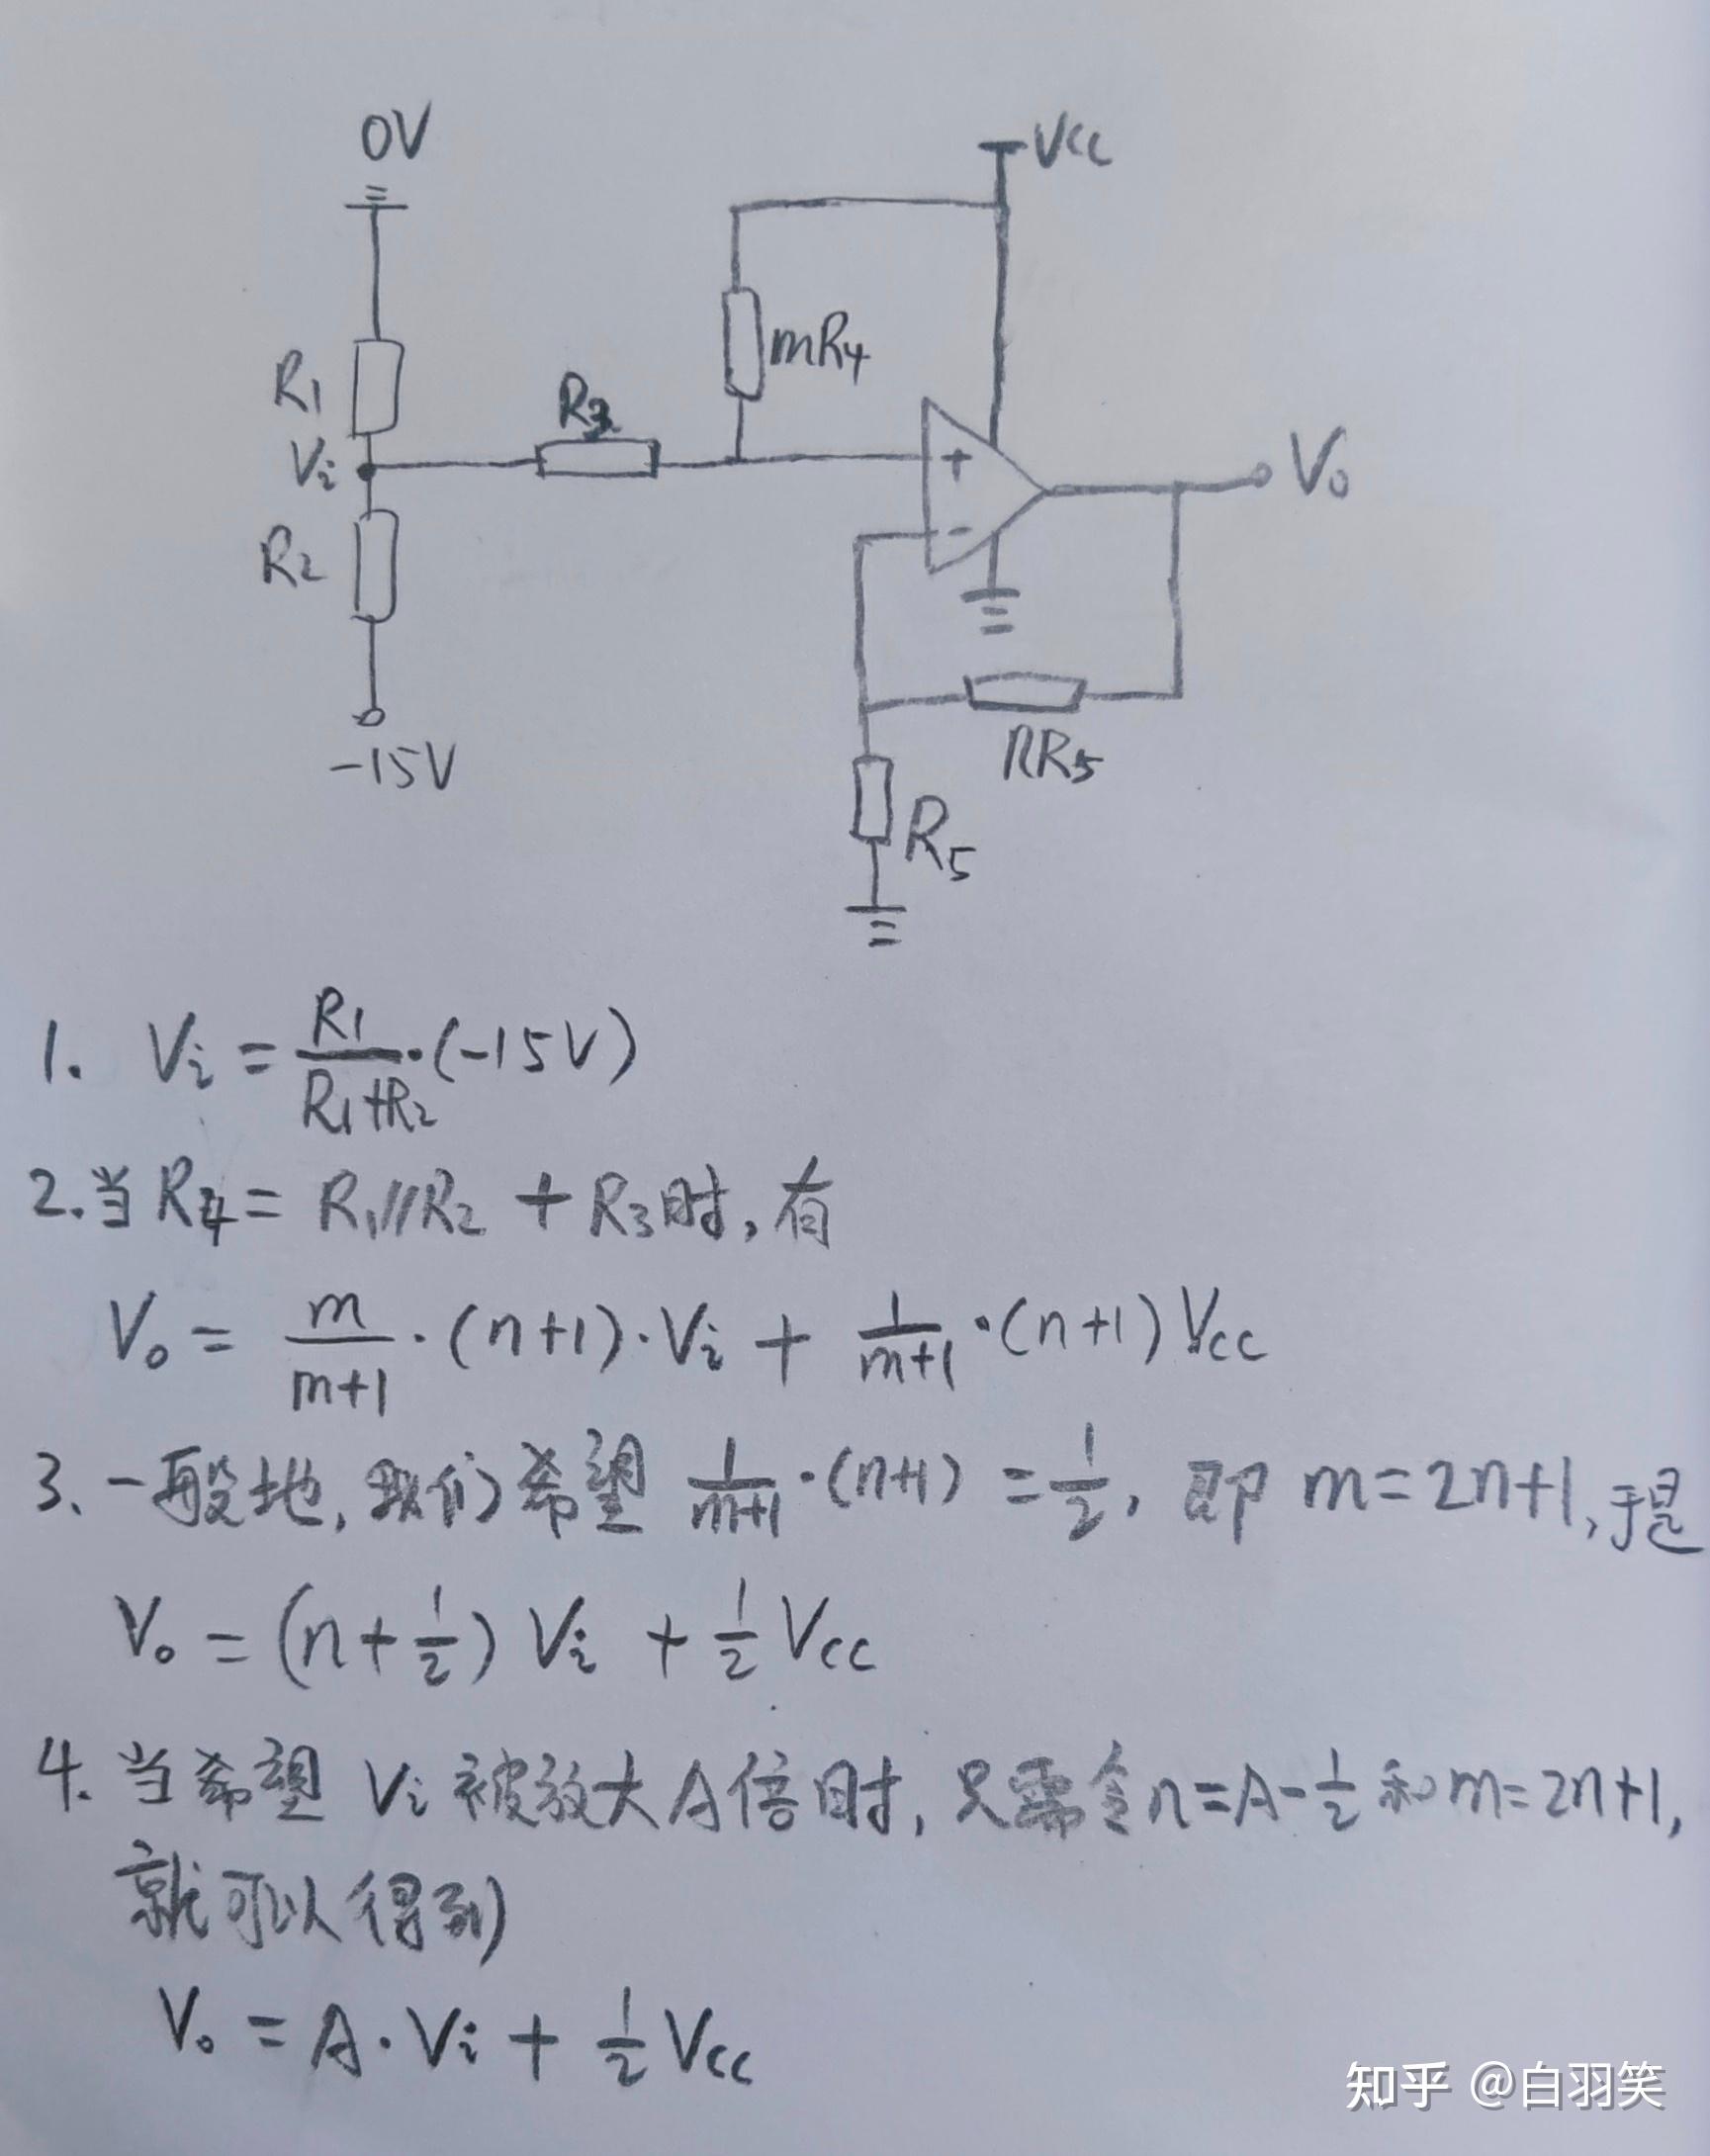 0V
VCC
mR4
R1
R3
Vi
+
-
Vo
R2
-15V
nR5
R5
1. Vi = R1/(R1+R2)·(-15V)
2.当R4 = R1//R2 + R3时,有
Vo = m/(m+1)·(n+1)·Vi + 1/(m+1)·(n+1)Vcc
3、一般地,我们希望 1/(m+1)·(n+1) = 1/2, 即 m=2n+1,于是
Vo = (n+1/2) Vi + 1/2 Vcc
4.当希望 Vi 被放大A倍时,只需令n=A-1/2和m=2n+1,
就可以得到
Vo = A·Vi + 1/2 Vcc
知乎 @白羽笑